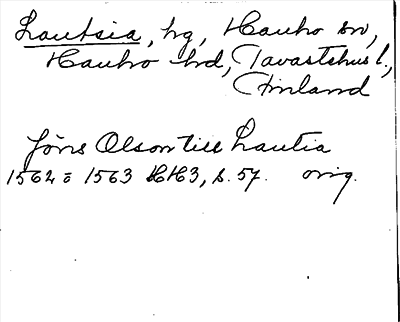 Lautsia, hg, Hauho sn,
Hauho hd, Tavastehus l.,
Finland
Jöns Olson till Lautia
1562 o 1563 HH3, s. 57. orig.